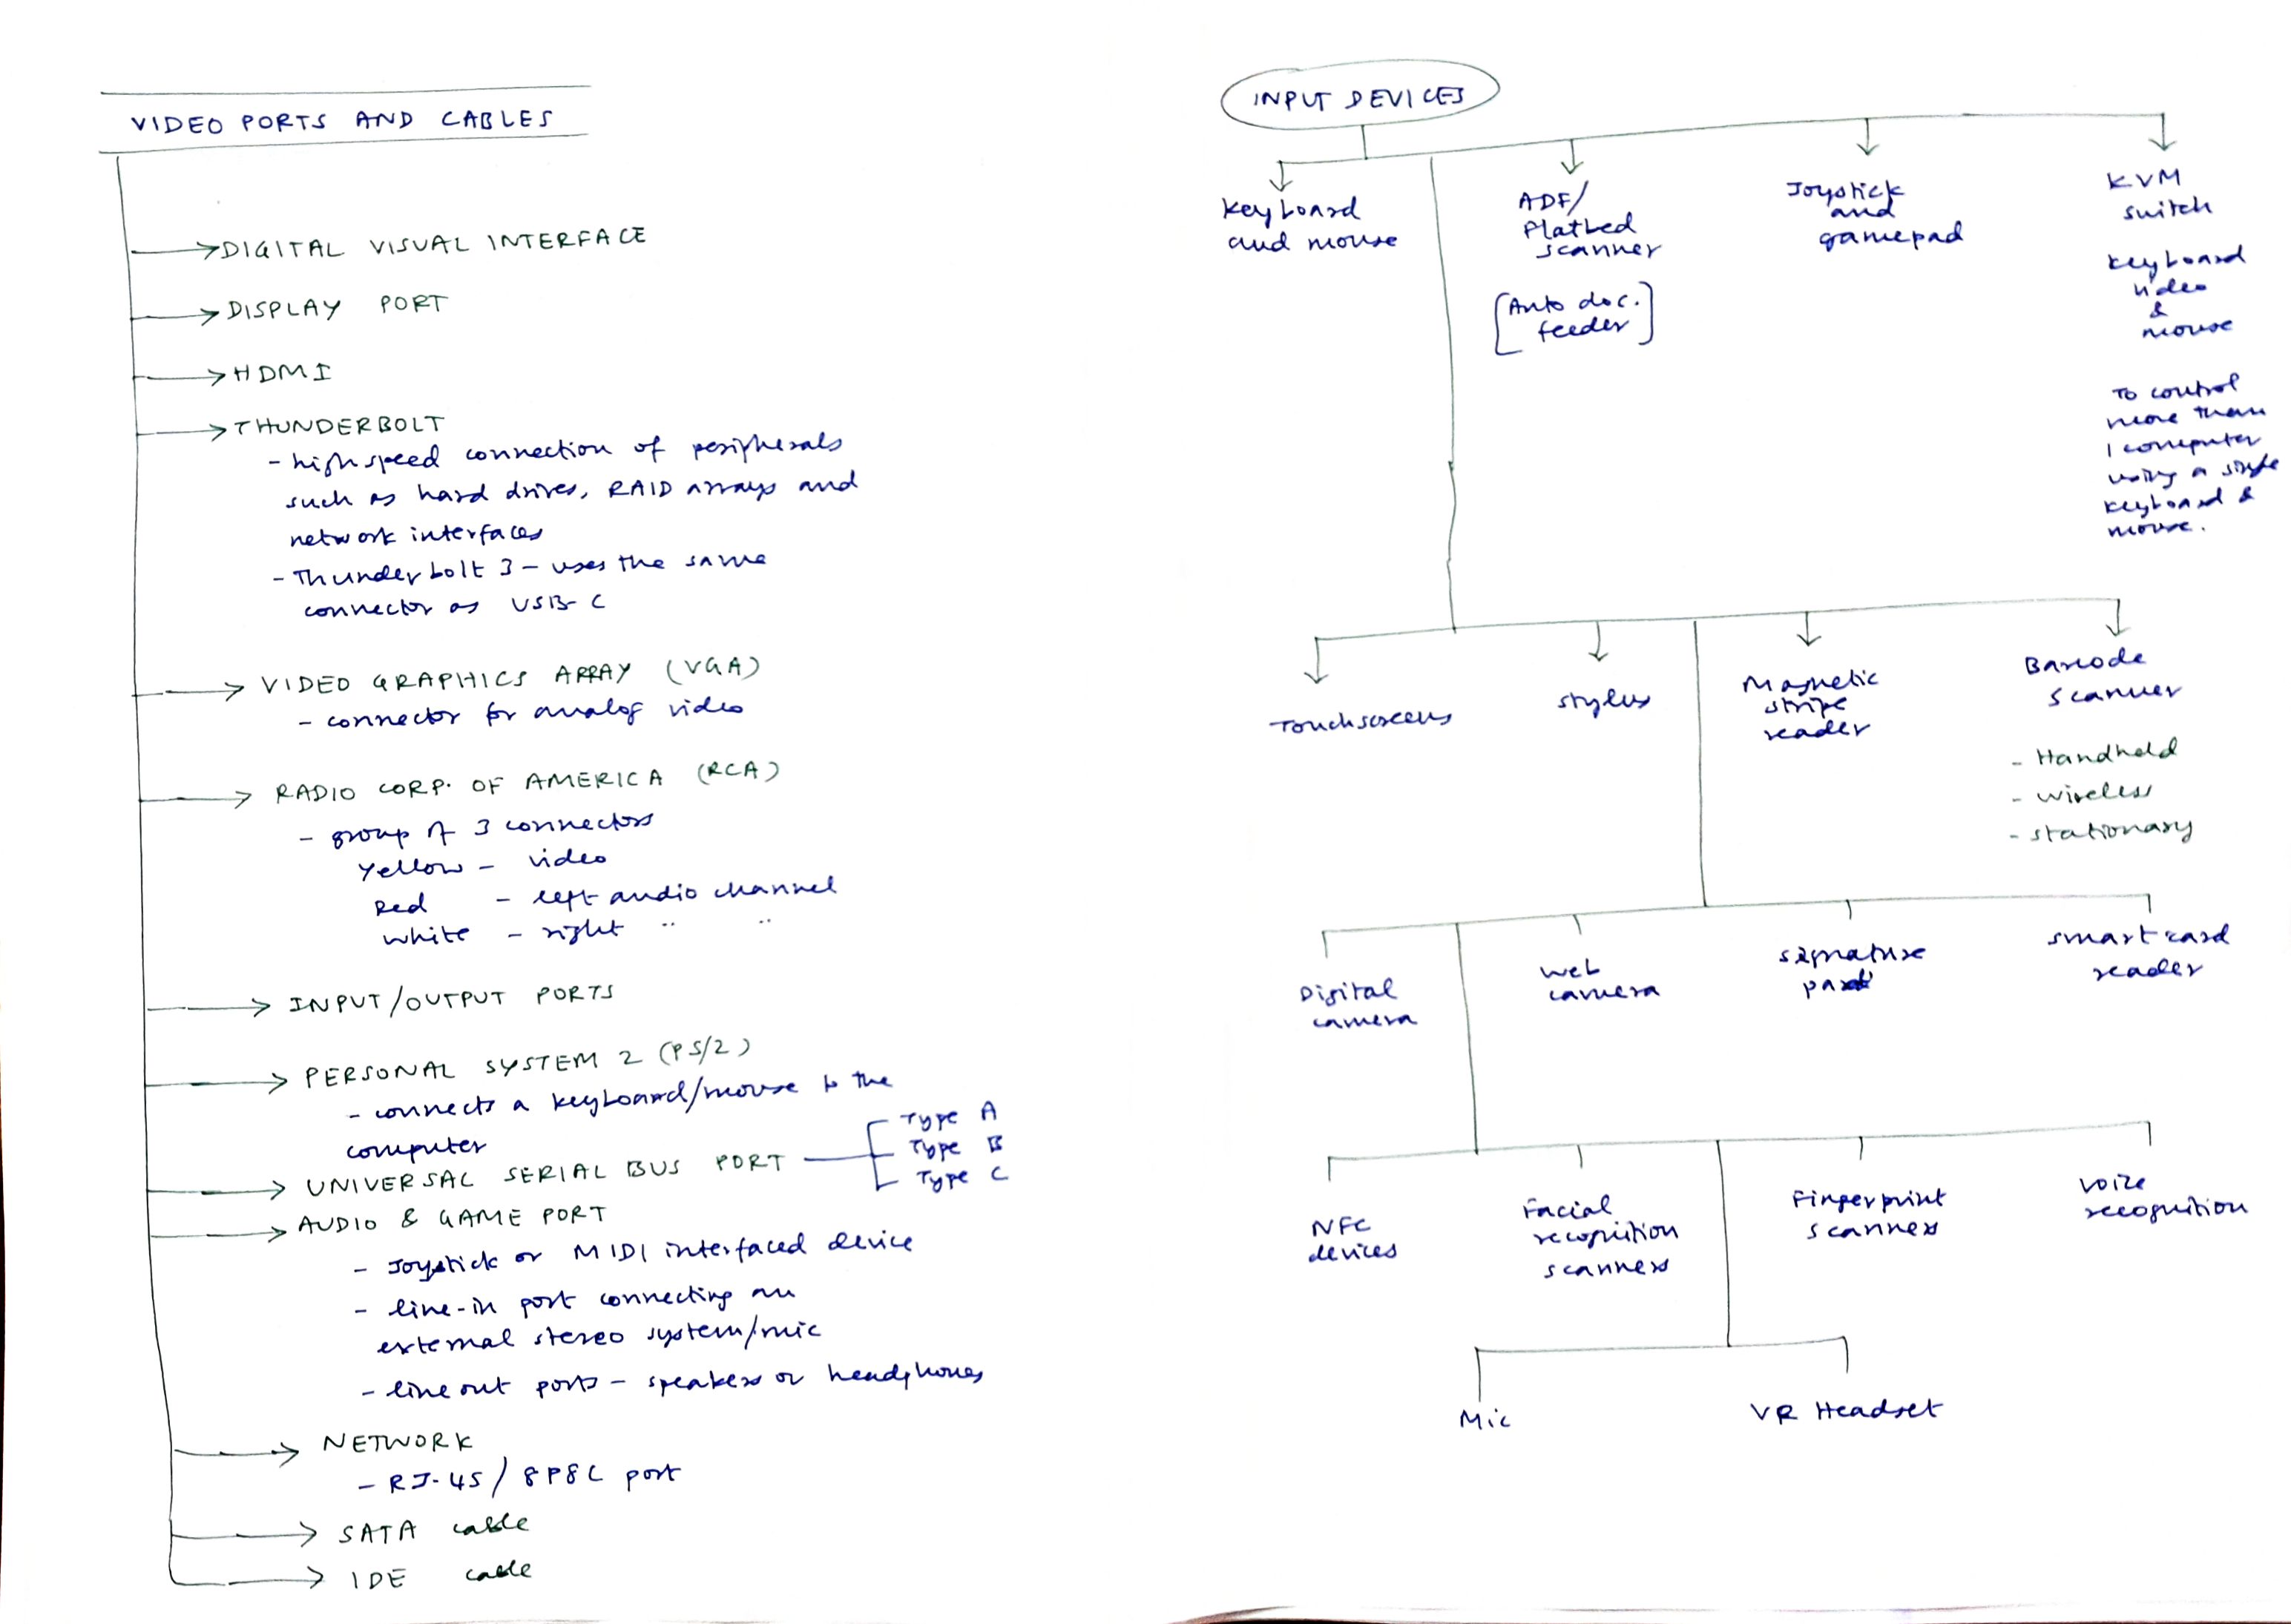 VIDEO PORTS AND CABLES
DIGITAL VISUAL INTERFACE
DISPLAY PORT
HDMI
THUNDERBOLT
- high speed connection of peripherals
such as hard drives, RAID arrays and
network interfaces
- Thunderbolt 3 - uses the same
connector as USB-C
VIDEO GRAPHICS ARRAY (VGA)
- connector for analog video
RADIO CORP. OF AMERICA (RCA)
- group of 3 connectors
Yellow - video
Red - left audio channel
white - right " "
INPUT/OUTPUT PORTS
PERSONAL SYSTEM 2 (PS/2)
- connects a keyboard/mouse to the
computer
UNIVERSAL SERIAL BUS PORT
Type A
Type B
Type C
AUDIO & GAME PORT
- Joystick or MIDI interfaced device
- line-in port connecting an
external stereo system/mic
- line out ports - speakers or headphones
NETWORK
- RJ-45 / 8P8C port
SATA cable
IDE cable
INPUT DEVICES
Keyboard
and mouse
ADF/
Flatbed
scanner
[Auto doc.
feeder]
Joystick
and
gamepad
KVM
switch
Keyboard
video
&
mouse
To control
more than
1 computer
using a single
keyboard &
mouse.
Touchscreens
stylus
Magnetic
stripe
reader
Barcode
scanner
- Handheld
- wireless
- stationary
Digital
camera
Web
camera
signature
pad
smart card
reader
NFC
devices
Facial
recognition
scanners
Fingerprint
scanners
voice
recognition
Mic
VR Headset